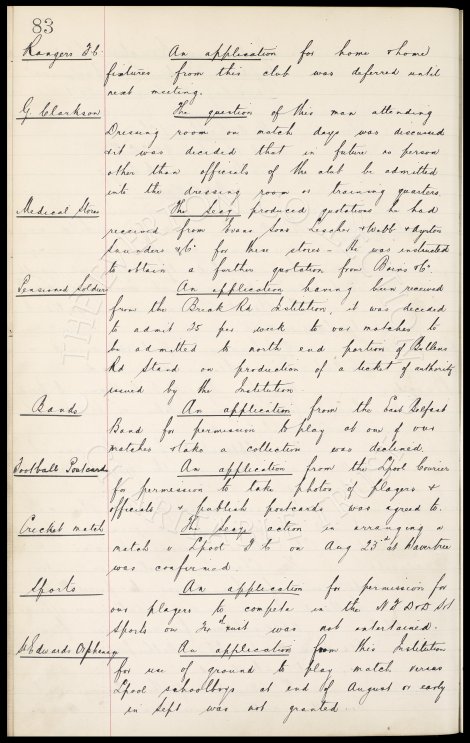 83
Rangers F.C. An application for home & home
fixtures from this club was deferred until
next meeting.
G. Clarkson The question of this man attending
Dressing room on match days was discussed
& it was decided that in future no person
other than officials of the club be admitted
into the dressing room or training quarters.
Medical Stores The Secy produced quotations he had
received from Evans Sons Lescher & Webb & Ayrton
Saunders & Co for these stores - He was instructed
to obtain a further quotation from & Co.
Pensioned Soldiers An application having been received
from the Breck Rd Institution, it was decided
to admit 25 per week to our matches to
be admitted to north end portion of Bullens
Rd Stand on production of a ticket of authority
issued by the Institution.
Bands An application from the East Belfast
Band for permission to play at one of our
matches & take a collection was declined.
Football Postcards An application from the Lpool Courier
for permission to take photos of players &
officials & publish postcards was agreed to.
Cricket match The Secys action in arranging a
match v Lpool F C on Aug 23rd at Wavertree
was confirmed.
Sports An application for permission for
our players to compete in the
sports on inst was not entertained.
St Edwards Orphanage An application from this Institution
for use of ground to play match versus
Lpool schoolboys at end of August or early
in Sept was not granted.